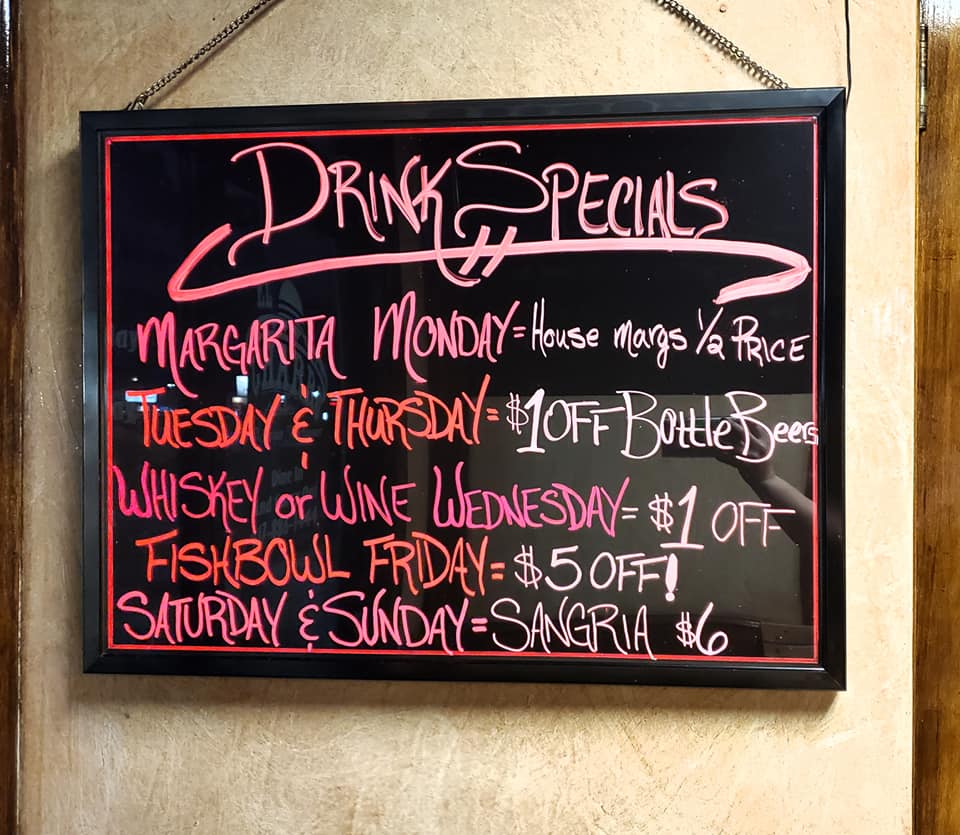 Drink Specials
Margarita Monday = House margs 1/2 Price
Tuesday & Thursday = $1 OFF Bottle Beers
Whiskey or Wine Wednesday = $1 OFF
Fishbowl Friday = $5 OFF!
Saturday & Sunday = Sangria $6